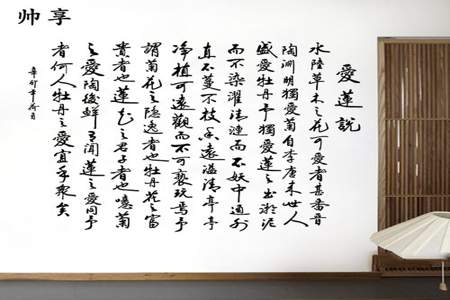 帅享
愛蓮說
水陸草木之花可愛者甚蕃晉
陶淵明獨愛菊自李唐来世人
盛愛牡丹予獨愛蓮之出淤泥
而不染濯清漣而不妖中通外
直不蔓不枝香遠溢清亭亭
净植可遠觀而不可褻玩焉予
謂菊花之隱逸者也牡丹花之富
貴者也蓮花之君子者也噫菊
之愛陶後鮮有聞蓮之愛同予
者何人牡丹之愛宜乎眾矣
辛卯年荷月